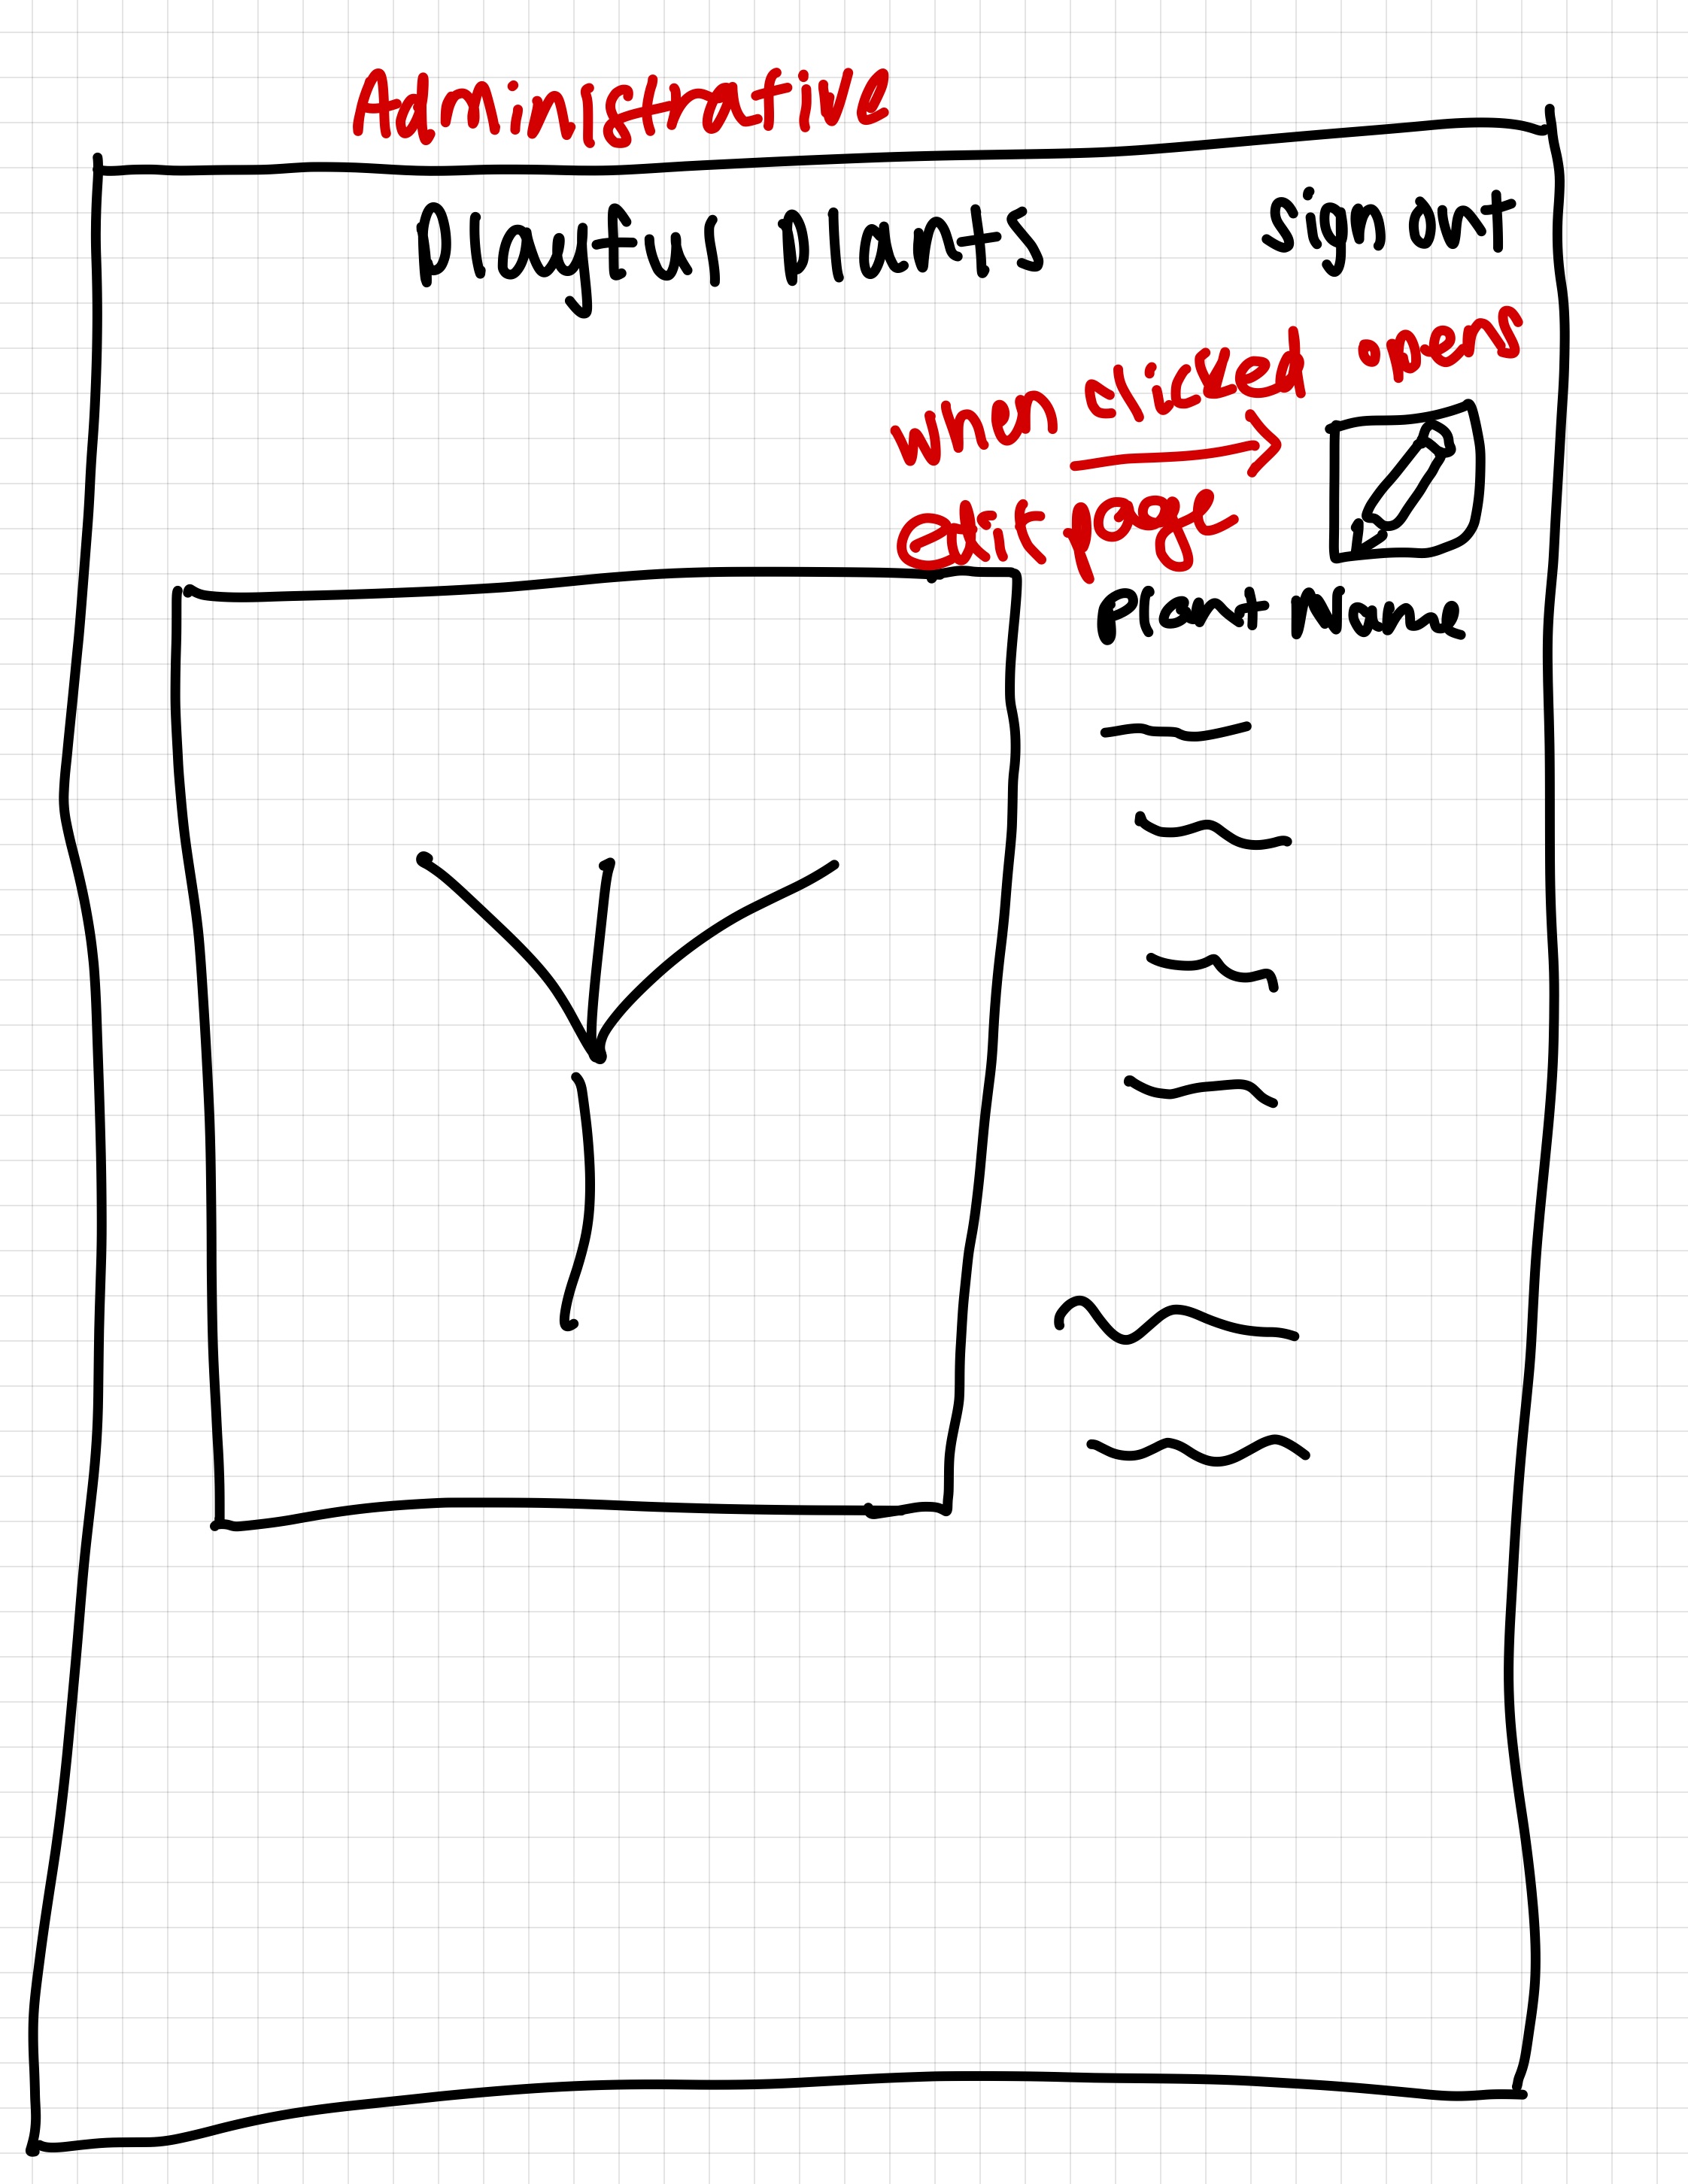 Administrative
Playful Plants
sign out
when clicked opens
edit page
Plant Name